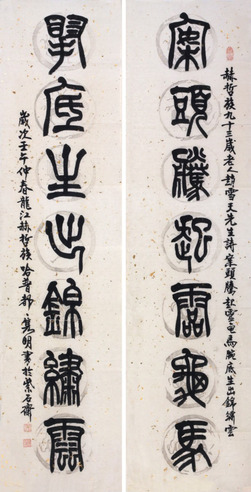 赫哲族九十三歲老人趙雪天先生詩案頭騰起雪黽馬腕底生出錦繡雲
案頭騰起雪黽馬
腕底生出錦繡雲
歲次壬午仲春龍江赫哲族哈普都雋明書於紫石齋